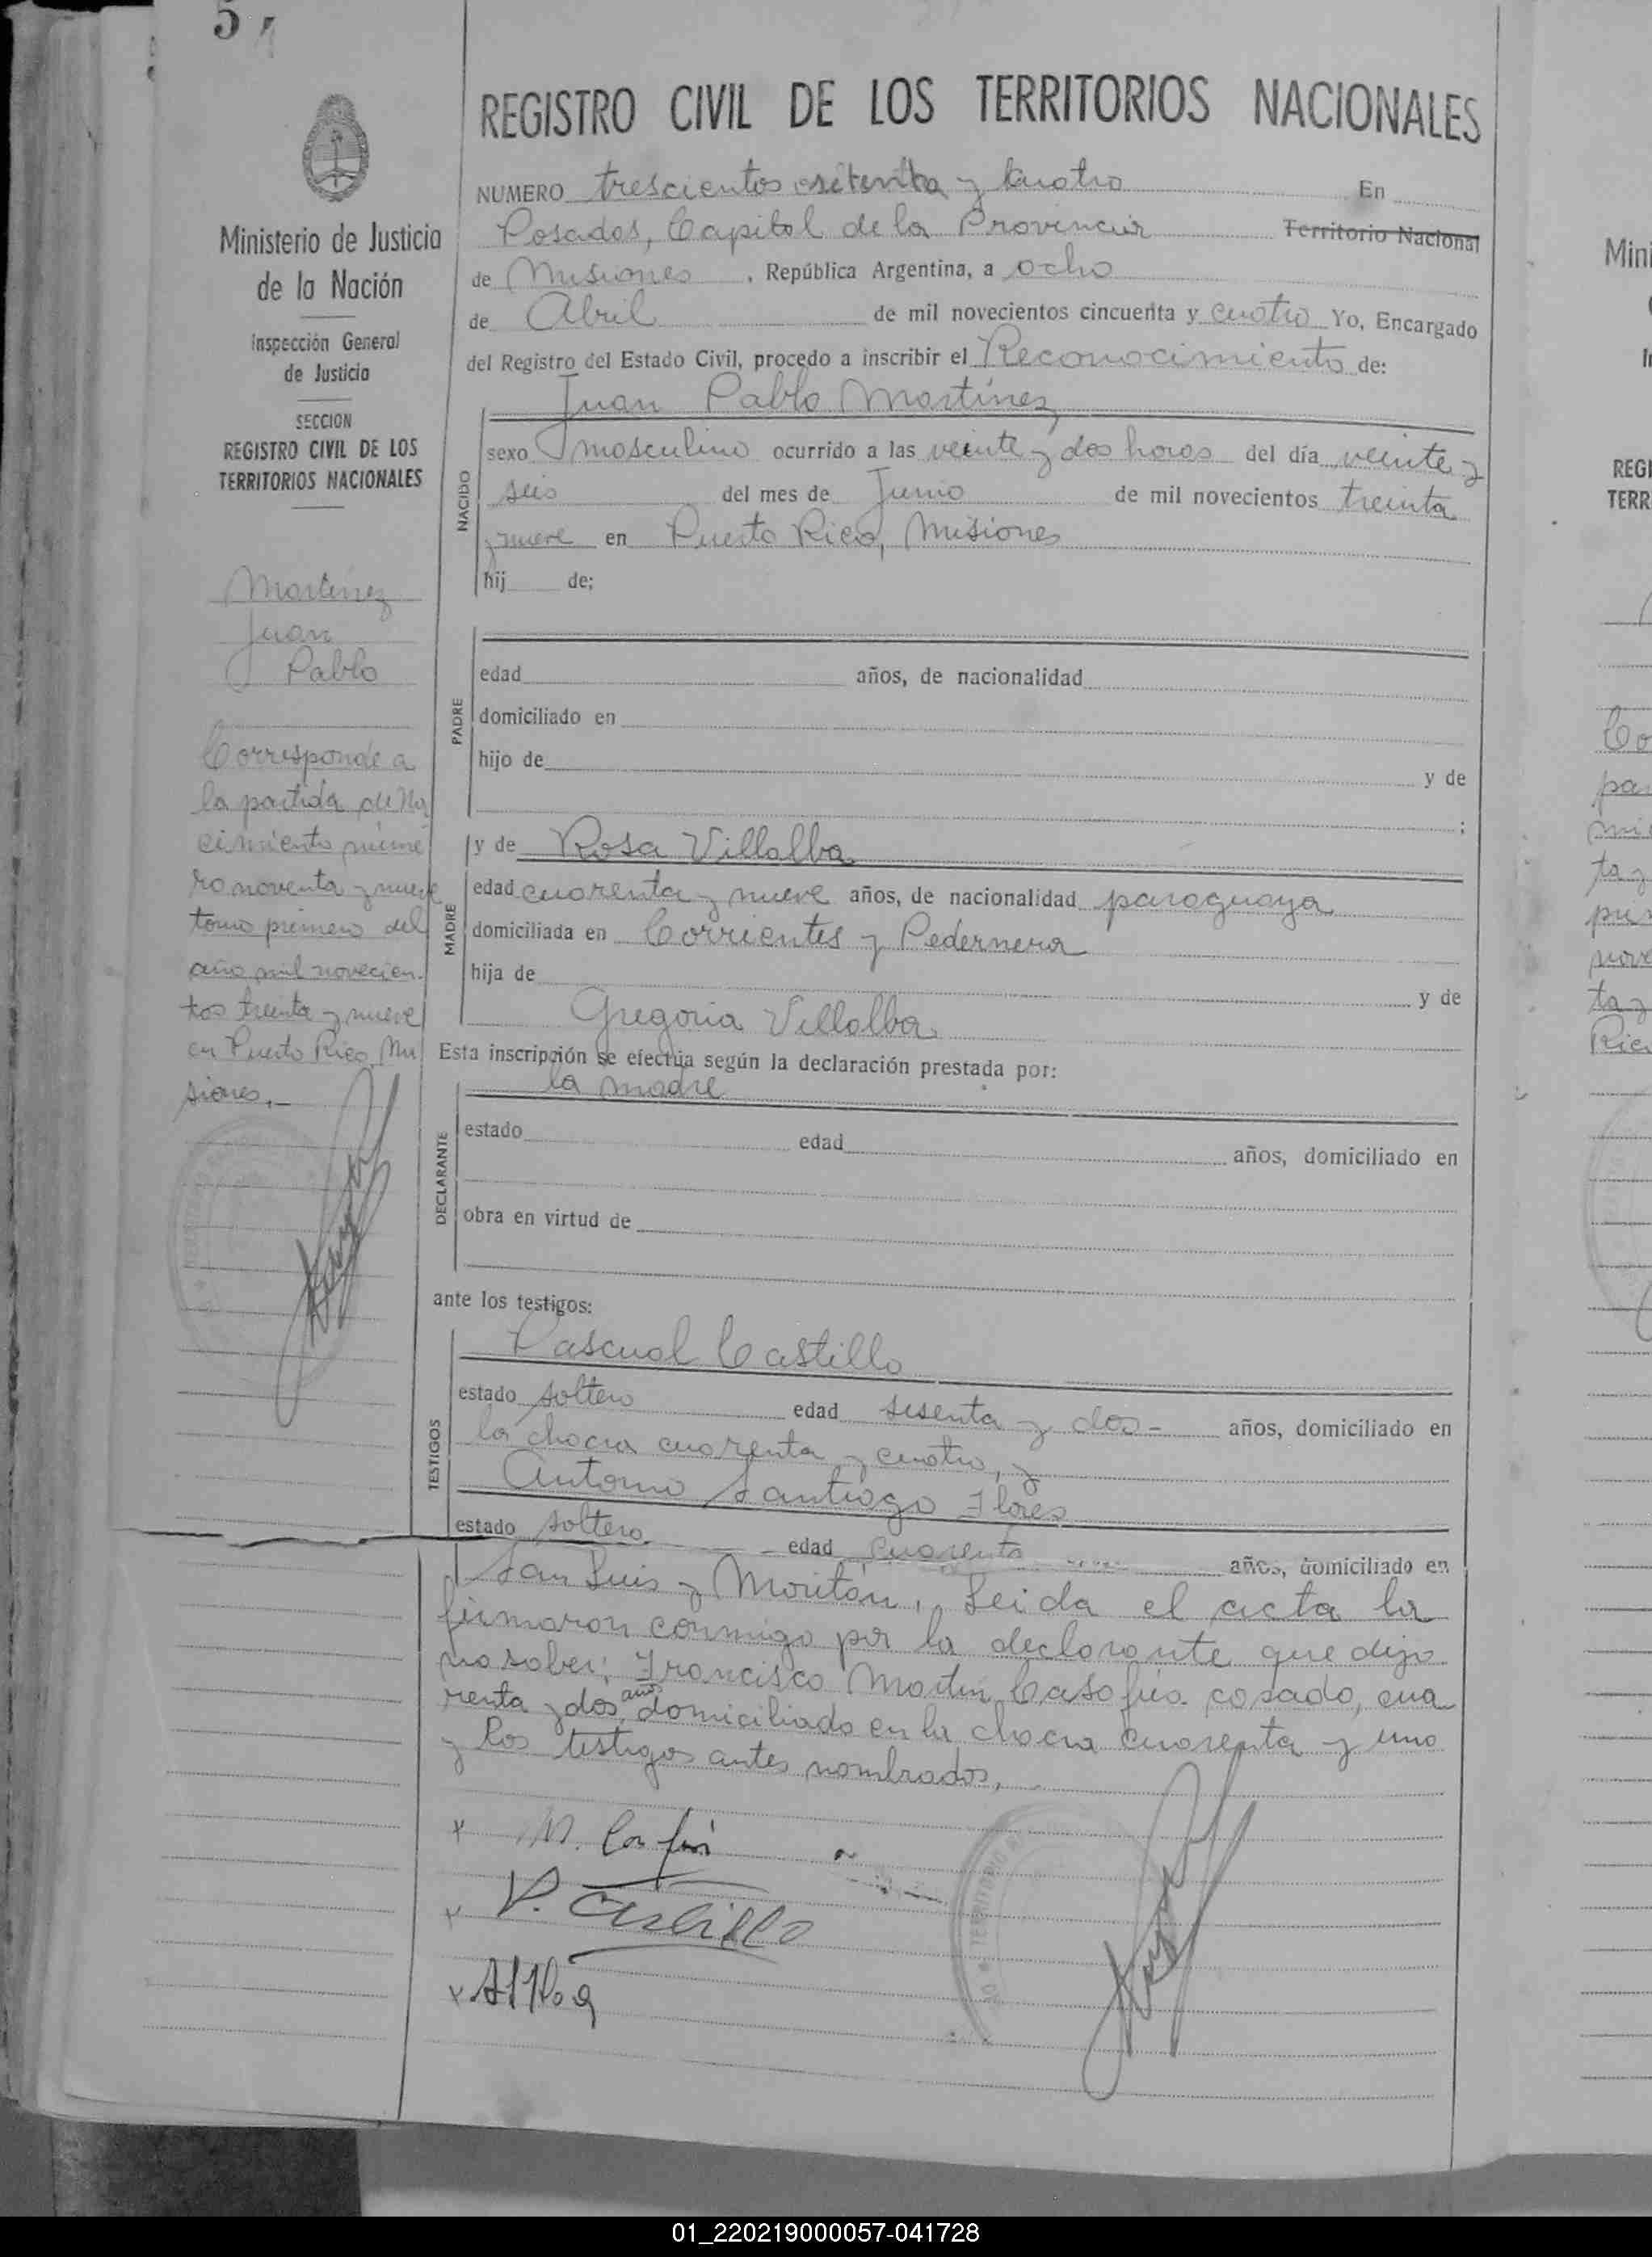 5
REGISTRO CIVIL DE LOS TERRITORIOS NACIONALES
Ministerio de Justicia
de la Nación
Inspección General
de Justicia
SECCION
REGISTRO CIVIL DE LOS
TERRITORIOS NACIONALES
Martínez
Juan
Pablo
Corresponde a
la partida de Na
cimiento núme
ro noventa y nueve
tomo primero del
año mil novecien-
tos treinta y nueve
en Puerto Rico, Mi
siones.-
NUMERO trescientos setenta y cuatro En
Posadas, Capital de la Provincia Territorio Nacional
de Misiones, República Argentina, a ocho
de Abril de mil novecientos cincuenta y cuatro Yo, Encargado
del Registro del Estado Civil, procedo a inscribir el Reconocimiento de:
Juan Pablo Martínez
NACIDO
sexo masculino ocurrido a las veinte y dos horas del día veinte y
seis del mes de Junio de mil novecientos treinta
y nueve en Puerto Rico, Misiones
hij de;
PADRE
edad años, de nacionalidad
domiciliado en
hijo de y de
;
y de Rosa Villalba
MADRE
edad cuarenta y nueve años, de nacionalidad paraguaya
domiciliada en Corrientes y Pedernera
hija de y de
Gregoria Villalba
Esta inscripción se efectúa según la declaración prestada por:
la madre
DECLARANTE
estado edad años, domiciliado en
obra en virtud de
ante los testigos:
TESTIGOS
Pascual Castillo
estado soltero edad sesenta y dos - años, domiciliado en
la chacra cuarenta y cuatro, y
Antonio Santiago Flores
estado soltero edad cuarenta años, domiciliado en
San Luis y Moritán. Leida el acta la
firmaron conmigo por la declarante que dijo
no saber: Francisco Martín Casafús casado, cua
renta y dos años domiciliado en la chacra cuarenta y uno
y los testigos antes nombrados.
M. Casafús
P. Castillo
TERRITORIO
Mini
REGI
TERR
01_220219000057-041728